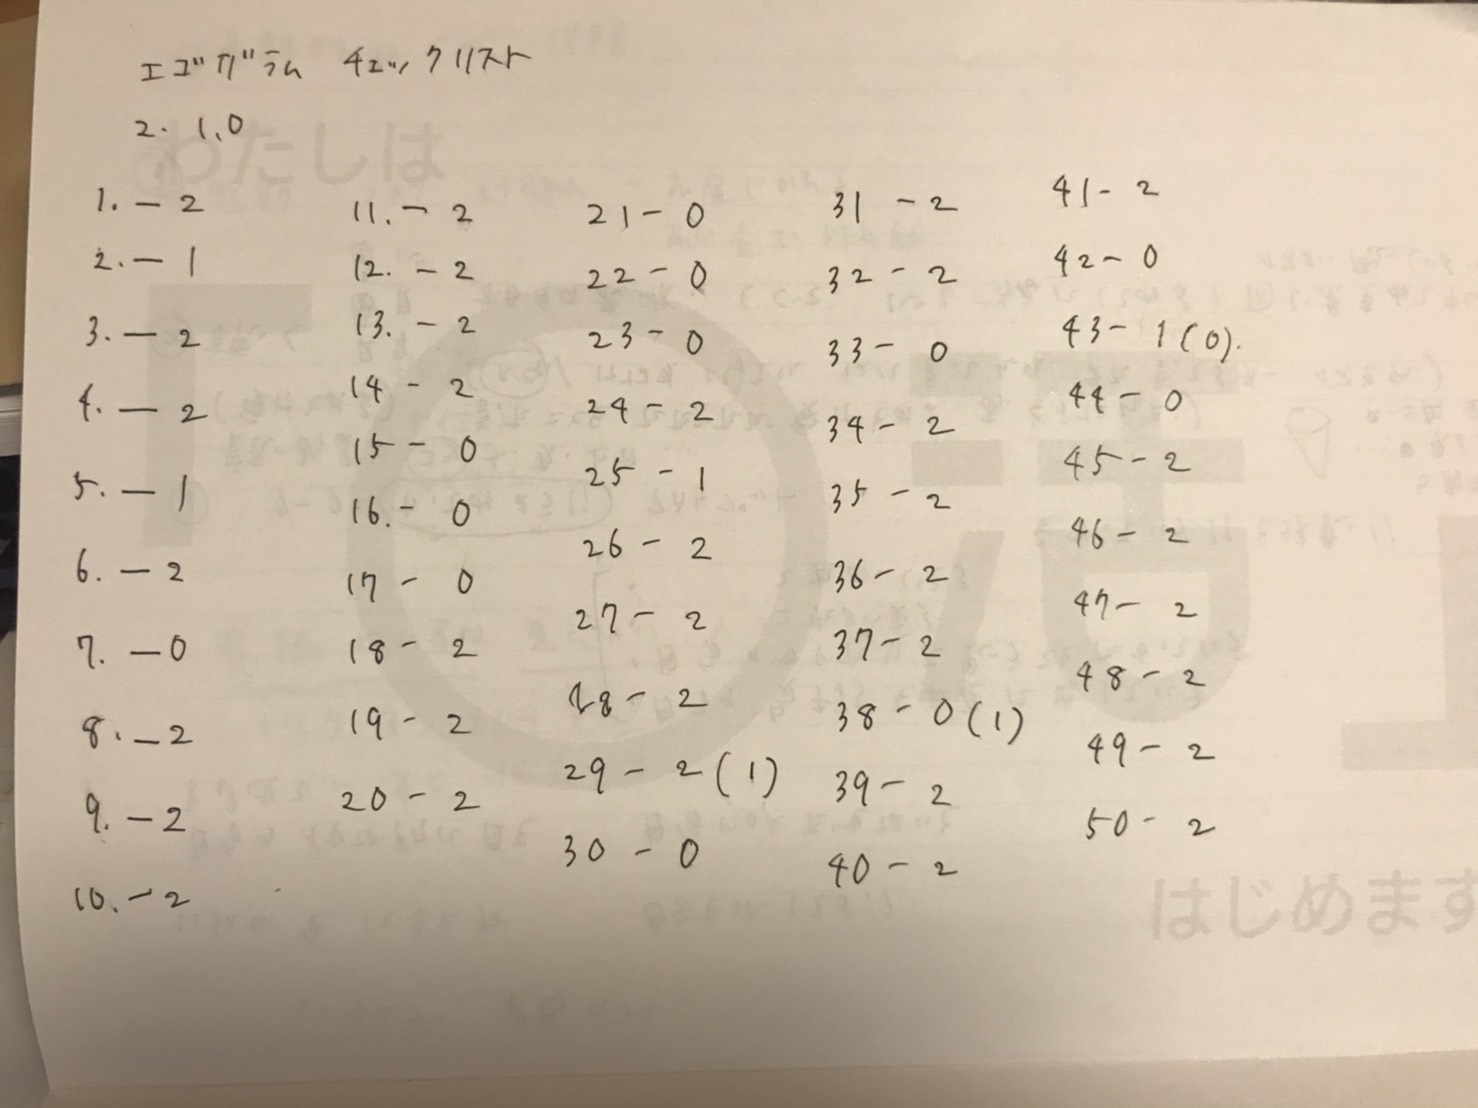 エゴグラム チェックリスト
2. 1、0
1. - 2
2. - 1
3. - 2
4. - 2
5. - 1
6. - 2
7. - 0
8. - 2
9. - 2
10. - 2
11. - 2
12. - 2
13. - 2
14 - 2
15 - 0
16. - 0
17 - 0
18 - 2
19 - 2
20 - 2
21 - 0
22 - 0
23 - 0
24 - 2
25 - 1
26 - 2
27 - 2
28 - 2
29 - 2 (1)
30 - 0
31 - 2
32 - 2
33 - 0
34 - 2
35 - 2
36 - 2
37 - 2
38 - 0 (1)
39 - 2
40 - 2
41 - 2
42 - 0
43 - 1 (0).
44 - 0
45 - 2
46 - 2
47 - 2
48 - 2
49 - 2
50 - 2
わたしは
「〇活」
はじめます